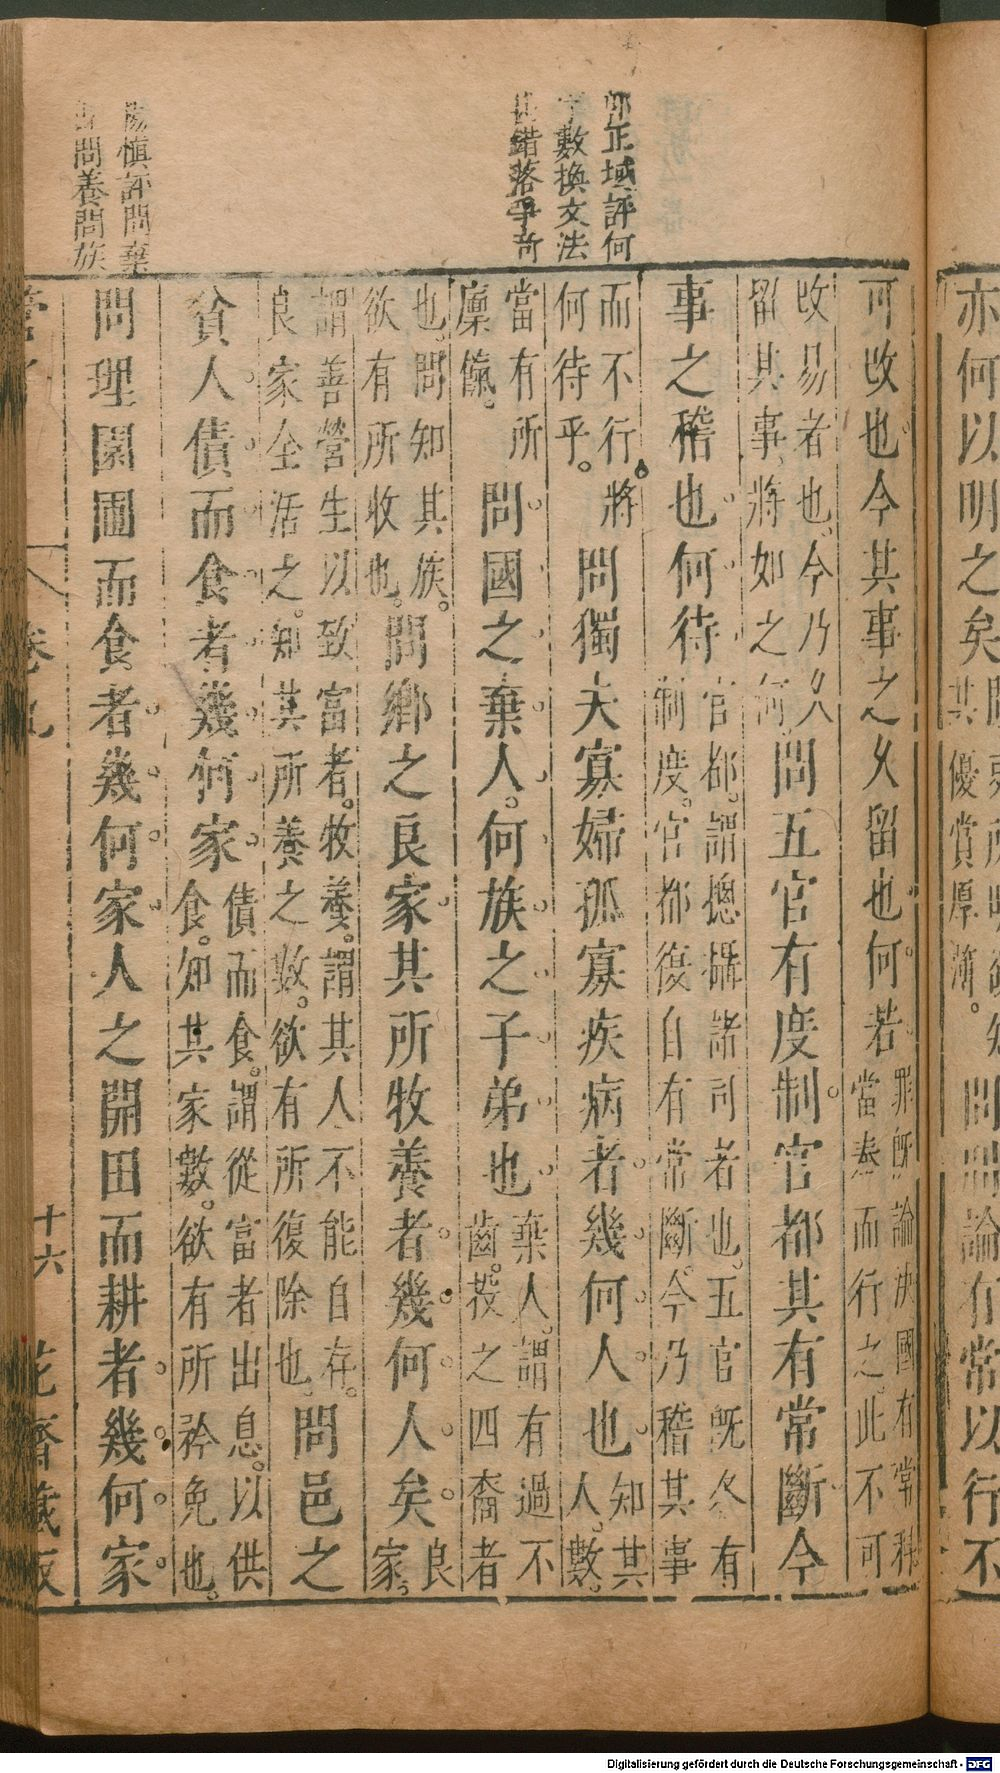 亦何以明之矣
其優賞厚薄。
問刑論有常以行不
郭正域評何
字數換文法
錯落
可改也今其事之久留也何若
罪旣論决國有常科
當奏而行之此不可
改易者也。今乃久
留其事將如之何
問五官有度制官都其有常斷今
事之稽也何待
官都。謂摠攝諸司者也。五官旣各有
制度。官都復自有常斷。今乃稽其事
而不行。將
何待乎。
問獨夫寡婦孤寡疾病者幾何人也
知其
人數。
當有所
廩餼。
問國之棄人。何族之子弟也
棄人。謂有過不
齒。投之四裔者
也。問知其族。
欲有所收也。
問鄉之良家其所牧養者幾何人矣
良
家。
謂善營生以致富者。牧養。謂其人不能自存。
良家全活之。知其所養之數。欲有所復除也。
問邑之
貧人債而食者幾何家
債而食。謂從富者出息。以供
食。知其家數。欲有所矜免也。
楊慎評問棄
問養問族
問理園圃而食者幾何家人之開田而耕者幾何家
管子
卷九
十六
花齋藏板
Digitalisierung gefördert durch die Deutsche Forschungsgemeinschaft - DFG